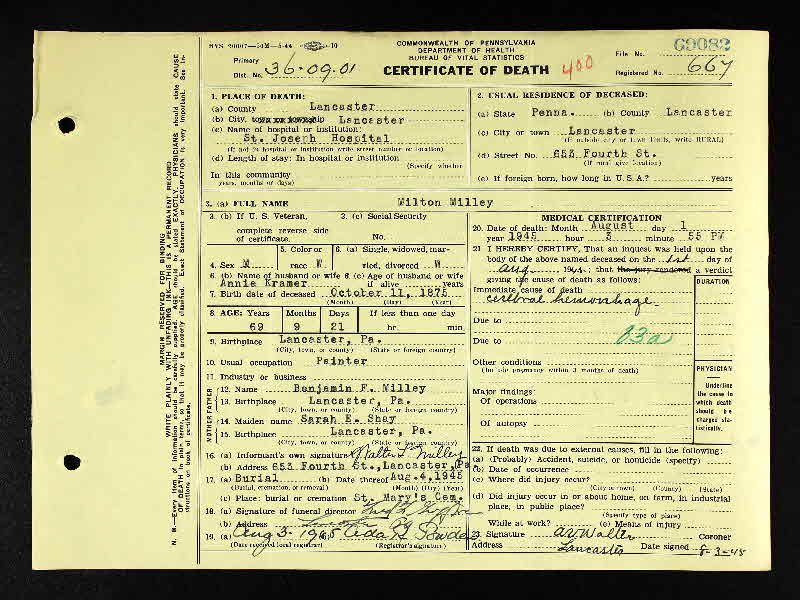 HVS 20007—50M—5-44 10
COMMONWEALTH OF PENNSYLVANIA
DEPARTMENT OF HEALTH
BUREAU OF VITAL STATISTICS
CERTIFICATE OF DEATH
Primary
Dist. No. 36-09-01
400
69082
File No.
Registered No. 667
MARGIN RESERVED FOR BINDING
WRITE PLAINLY WITH UNFADING INK—THIS IS A PERMANENT RECORD
N. B.—Every item of information should be carefully supplied. AGE should be stated EXACTLY. PHYSICIANS should state CAUSE
OF DEATH in plain terms, so that it may be properly classified. Exact statement of OCCUPATION is very important. See in-
structions on back of certificate.
1. PLACE OF DEATH:
(a) County Lancaster
(b) City, town or township Lancaster
(c) Name of hospital or institution:
St. Joseph Hospital
(If not in hospital or institution write street number or location)
(d) Length of stay: In hospital or institution
(Specify whether
In this community
years, months or days)
2. USUAL RESIDENCE OF DECEASED:
(a) State Penna. (b) County Lancaster
(c) City or town Lancaster
(If outside city or town limits, write RURAL)
(d) Street No. 653 Fourth St.
(If rural give location)
(e) If foreign born, how long in U. S. A.? years
3. (a) FULL NAME Milton Milley
3. (b) If U. S. Veteran,
complete reverse side
of certificate.
3. (c) Social Security
No.
4. Sex M
5. Color or
race W
6. (a) Single, widowed, mar-
ried, divorced W
6. (b) Name of husband or wife
Annie Kramer
6. (c) Age of husband or wife
if alive years
7. Birth date of deceased October 11, 1875
(Month) (Day) (Year)
8. AGE: Years Months Days If less than one day
69 9 21 hr. min.
9. Birthplace Lancaster, Pa.
(City, town, or county) (State or foreign country)
10. Usual occupation Painter
11. Industry or business
FATHER
12. Name Benjamin F. Milley
13. Birthplace Lancaster, Pa.
(City, town, or county) (State or foreign country)
MOTHER
14. Maiden name Sarah E. Shay
15. Birthplace Lancaster, Pa.
(City, town, or county) (State or foreign country)
16. (a) Informant's own signature Walter F. Milley
(b) Address 653 Fourth St., Lancaster, Pa
17. (a) Burial (b) Date thereof Aug. 4, 1945
(Burial, cremation, or removal) (Month) (Day) (Year)
(c) Place: burial or cremation St. Mary's Cem.
18. (a) Signature of funeral director
(b) Address Lancaster Pa
19. (a) Aug 3- 1945
(Date received local registrar) (Registrar's signature)
MEDICAL CERTIFICATION
20. Date of death: Month August day 1
year 1945 hour 3 minute 55 PM
21. I HEREBY CERTIFY, That an inquest was held upon the
body of the above named deceased on the 1st day of
aug 1945; that the jury rendered a verdict
giving the cause of death as follows:
Immediate cause of death
cerebral hemorrhage
DURATION
Due to
Due to 83a
Other conditions
(Include pregnancy within 3 months of death)
Major findings:
Of operations
Of autopsy
PHYSICIAN
Underline
the cause to
which death
should be
charged sta-
tistically.
22. If death was due to external causes, fill in the following:
(a) (Probably) Accident, suicide, or homicide (specify)
(b) Date of occurrence
(c) Where did injury occur?
(City or town) (County) (State)
(d) Did injury occur in or about home, on farm, in industrial
place, in public place?
(Specify type of place)
While at work? (e) Means of injury
23. Signature A V Walter Coroner
Address Lancaster Date signed 8-3-45